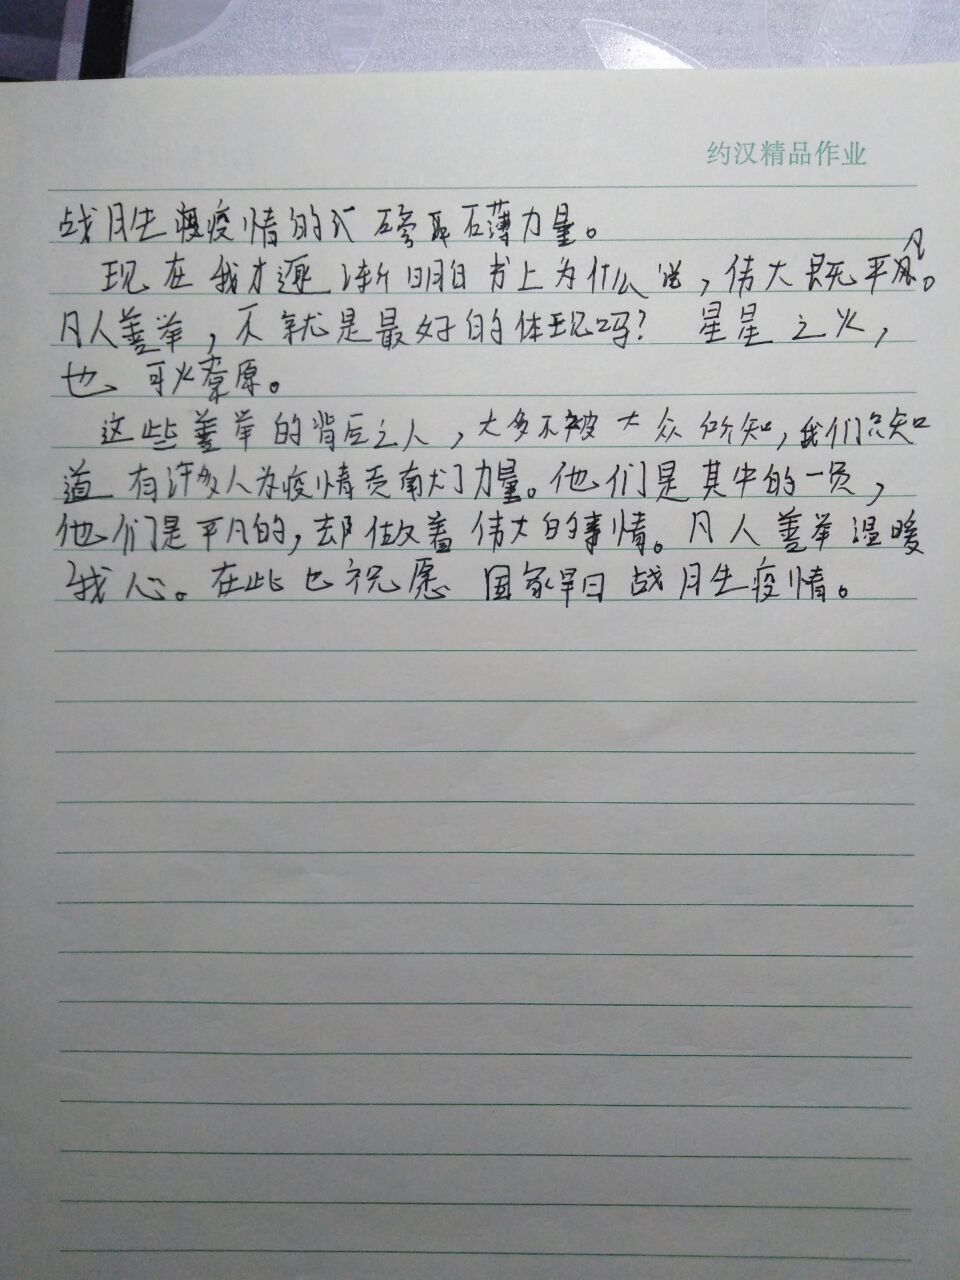 约汉精品作业
战胜疫情的磅礴力量。
现在我才逐渐明白书上为什么说,伟大既平凡。
凡人善举,不就是最好的体现吗?星星之火,
也可燎原。
这些善举的背后之人,大多不被大众所知,我们只知
道有许多人为疫情贡献力量。他们是其中的一员,
他们是平凡的,却做着伟大的事情。凡人善举温暖
我心。在此也祝愿国家早日战胜疫情。